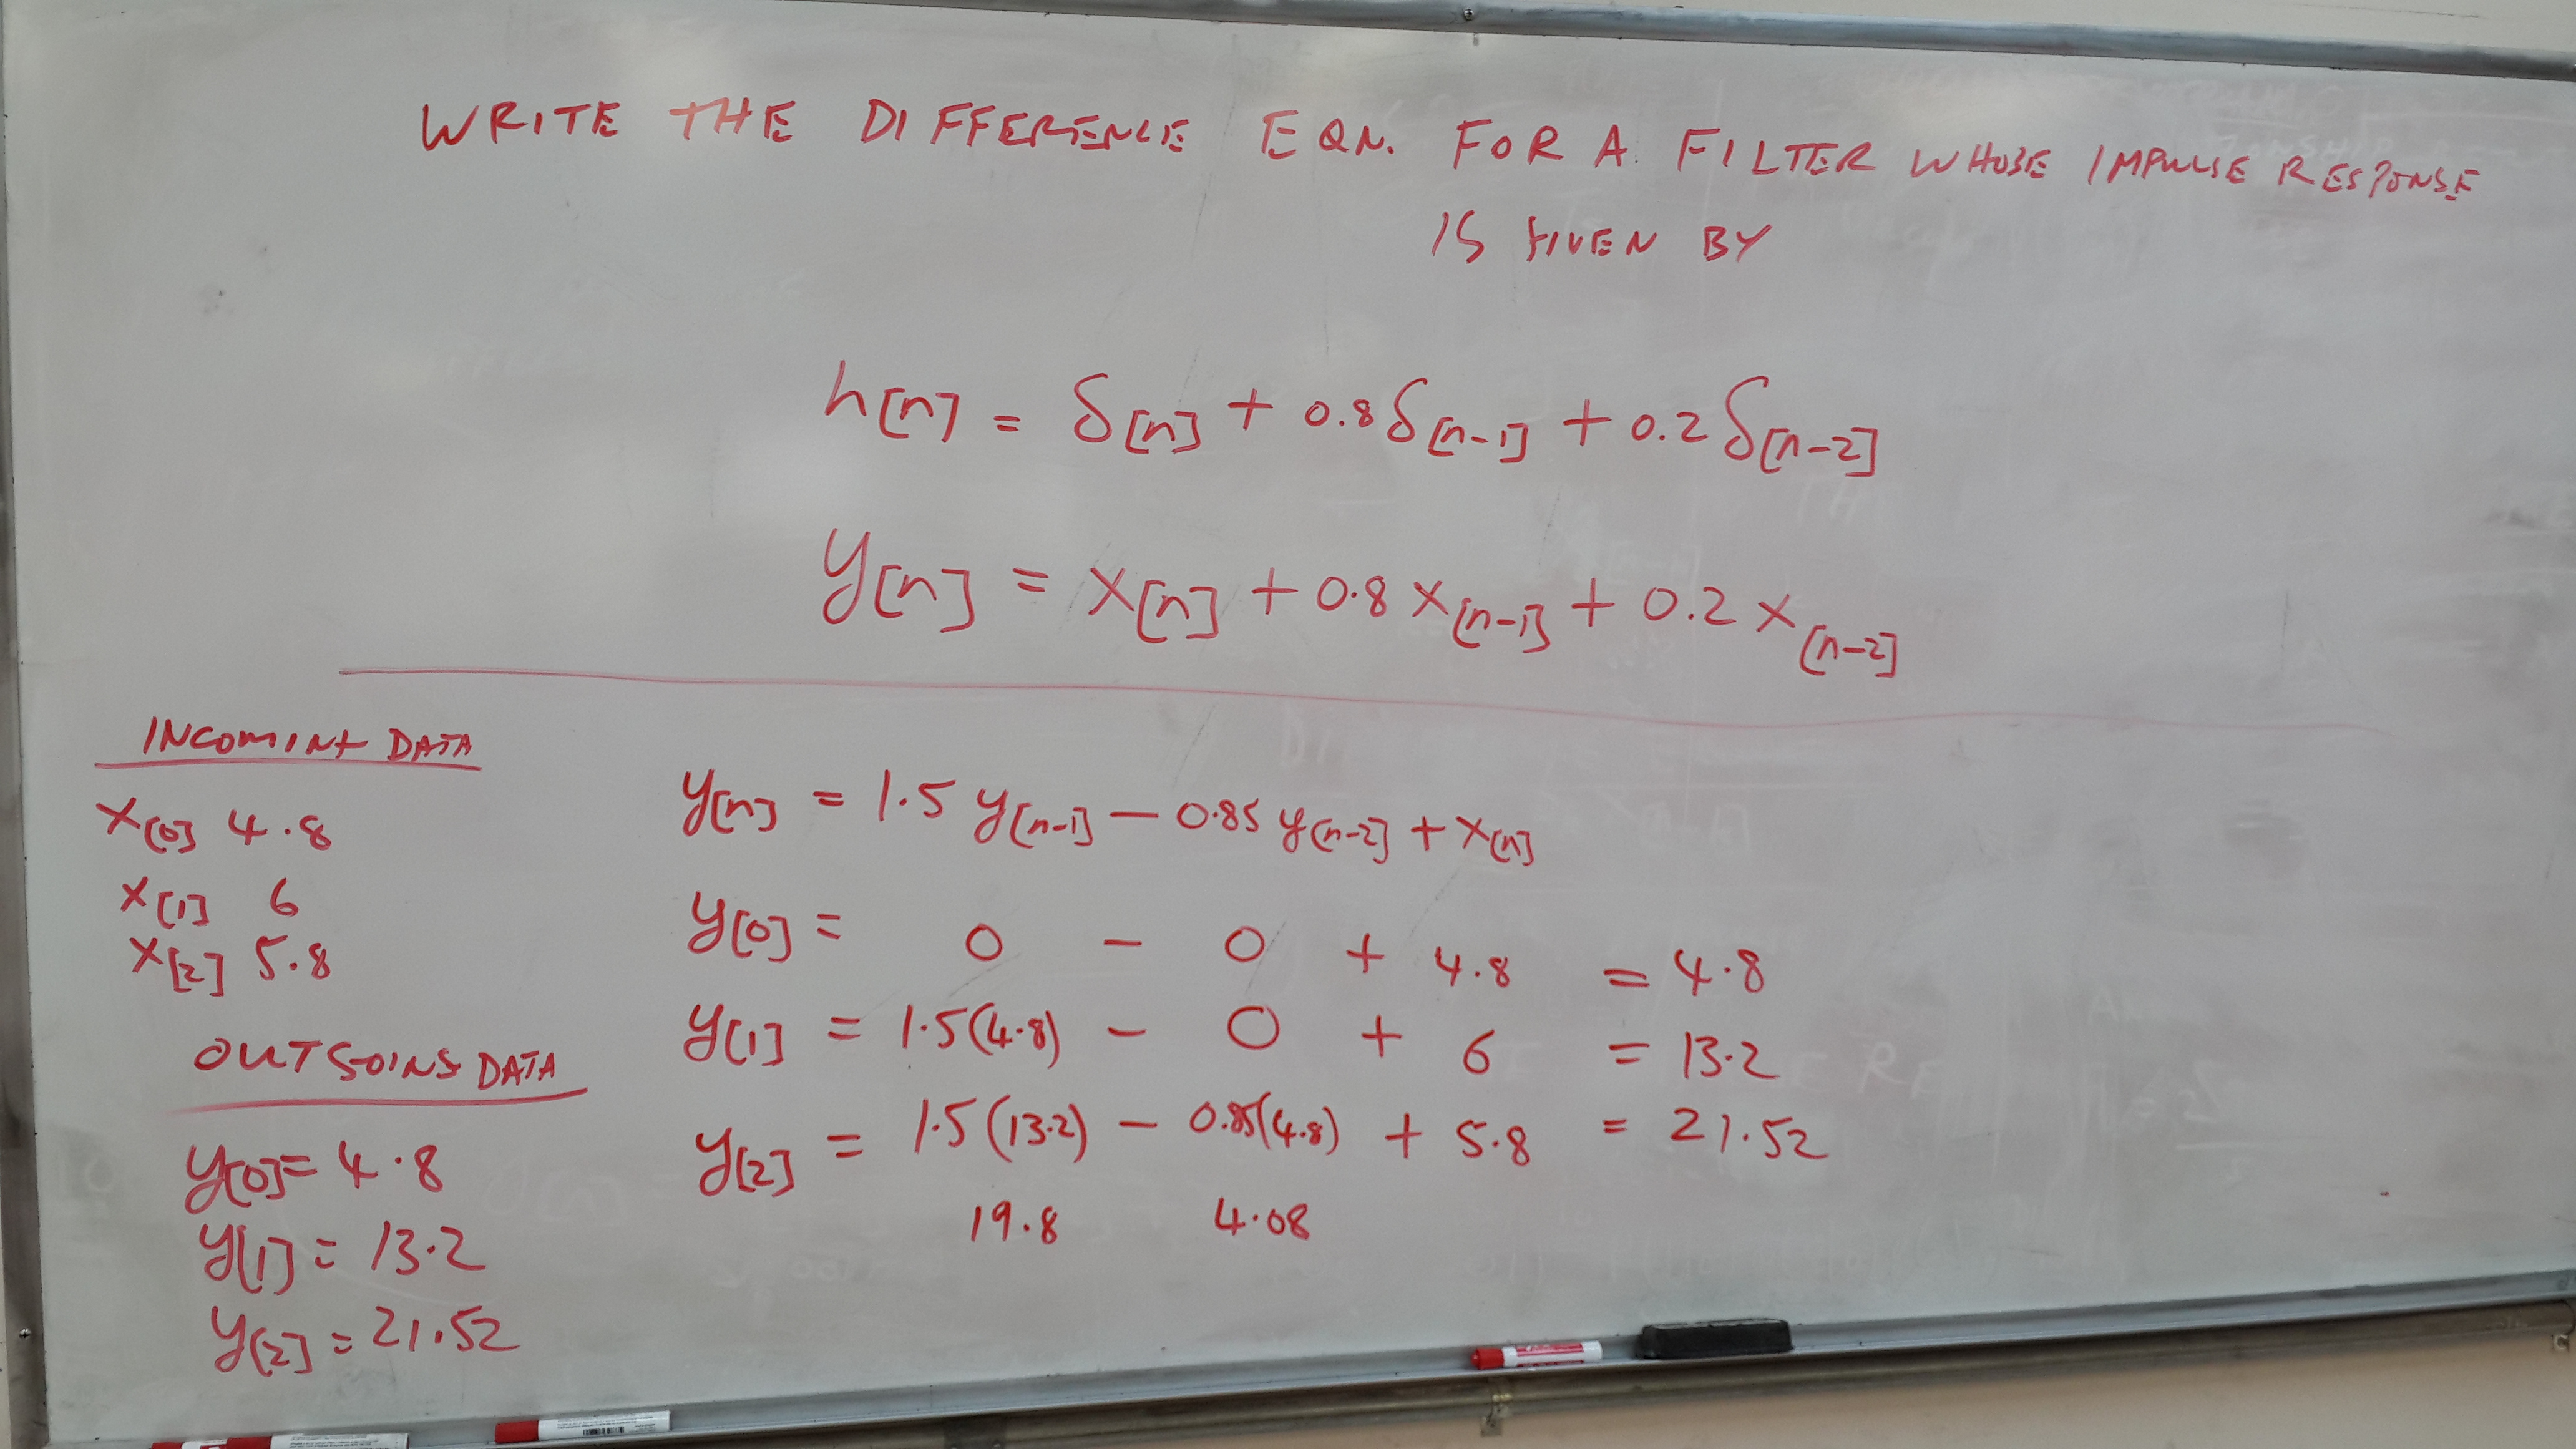 WRITE THE DIFFERENCE EQN. FOR A FILTER WHOSE IMPULSE RESPONSE
IS GIVEN BY
h[n] = δ[n] + 0.8δ[n-1] + 0.2δ[n-2]
y[n] = x[n] + 0.8x[n-1] + 0.2x[n-2]
INCOMING DATA
x[0] 4.8
x[1] 6
x[2] 5.8
OUTGOING DATA
y[0]= 4.8
y[1] = 13.2
y[2] = 21.52
y[n] = 1.5 y[n-1] - 0.85 y[n-2] + x[n]
y[0] = 0 - 0 + 4.8 = 4.8
y[1] = 1.5(4.8) - 0 + 6 = 13.2
y[2] = 1.5(13.2) - 0.85(4.8) + 5.8 = 21.52
19.8 4.08